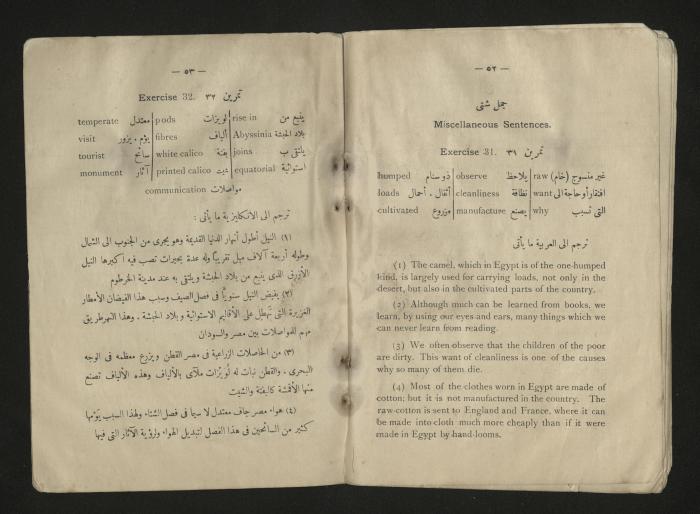 — ٥٢ —
جمل شتى
Miscellaneous Sentences.
Exercise 31. تمرين ٣١
humped ذو سنام observe يلاحظ raw غير منسوج (خام)
loads أثقال . أحمال cleanliness نظافة want افتقار أو حاجة الى
cultivated مزروع manufacture يصنع why التى تسبب
ترجم الى العربية ما يأتى
(1) The camel, which in Egypt is of the one-humped
kind, is largely used for carrying loads, not only in the
desert, but also in the cultivated parts of the country.
(2) Although much can be learned from books, we
learn, by using our eyes and ears, many things which we
can never learn from reading.
(3) We often observe that the children of the poor
are dirty. This want of cleanliness is one of the causes
why so many of them die.
(4) Most of the clothes worn in Egypt are made of
cotton; but it is not manufactured in the country. The
raw cotton is sent to England and France, where it can
be made into cloth much more cheaply than if it were
made in Egypt by hand-looms.
— ٥٣ —
Exercise 32. تمرين ٣٢
temperate معتدل pods لويزات rise in ينبع من
visit يؤم . يزور fibres ألياف Abyssinia بلاد الحبشة
tourist سائح white calico بفتة joins يلتقى ب
monument آثار printed calico شيت equatorial استوائية
communication مواصلات
ترجم الى الانكليزية ما يأتى :
(١) النيل أطول أنهار الدنيا القديمة وهو يجرى من الجنوب الى الشمال
وطوله أربعة آلاف ميل تقريبًا وله عدة بحيرات تصب فيه اكبرها النيل
الأزرق الذى ينبع من بلاد الحبشة ويلتقى به عند مدينة الخرطوم
(٢) يفيض النيل سنويًا فى فصل الصيف وسبب هذا الفيضان الأمطار
الغزيرة التى تهطل على الأقاليم الاستوائية وبلاد الحبشة . وهذا النهر طريق
مهم للمواصلات بين مصر والسودان
(٣) من الحاصلات الزراعية فى مصر القطن ويزرع معظمه فى الوجه
البحرى . والقطن نبات له لويزات ملآى بالألياف وهذه الألياف تصنع
منها الأقمشة كالبفتة والشيت
(٤) هواء مصر جاف معتدل لا سيما فى فصل الشتاء ولهذا السبب يؤمها
كثير من السائحين فى هذا الفصل لتبديل الهواء ولرؤية الآثار التى فيها